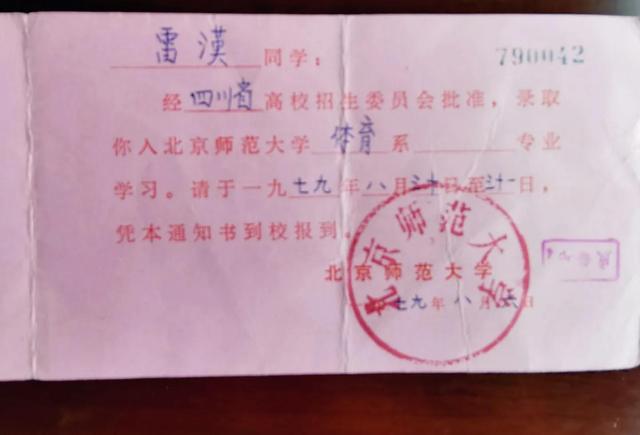 雷漢同学：
790042
经四川省高校招生委员会批准，录取
你入北京师范大学体育系专业
学习。请于一九七九年八月三十日至三十一日，
凭本通知书到校报到。
北京师范大学
七九年八月 日
北京师范大学